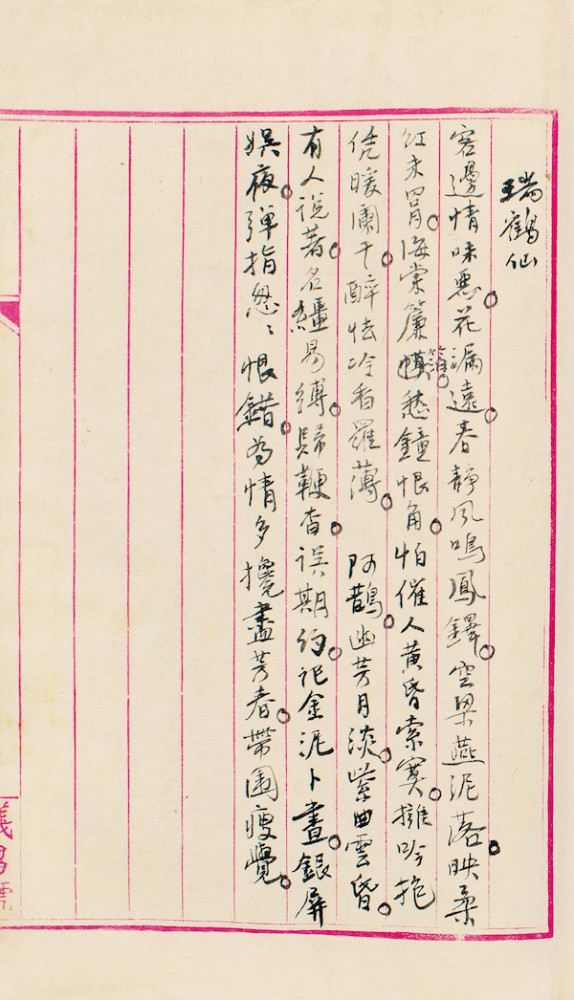 瑞鶴仙
客邊情味惡。花漏遠。春靜風鳴鳳鐸。空梁燕泥落。映柔
紅未罥。海棠簾箔。愁鐘恨角。怕催人黃昏索寞。擁吟抱
凭暖闌干。醉怯冷香羅薄。 阿鵲。幽芳月淡。紫曲雲昏。
有人說著。名繮易縛。歸鞭杳。誤期約。記金泥卜晝。銀屏
娛夜。彈指怱〻恨錯。為情多攙盡芳春。帶圍瘦覺。